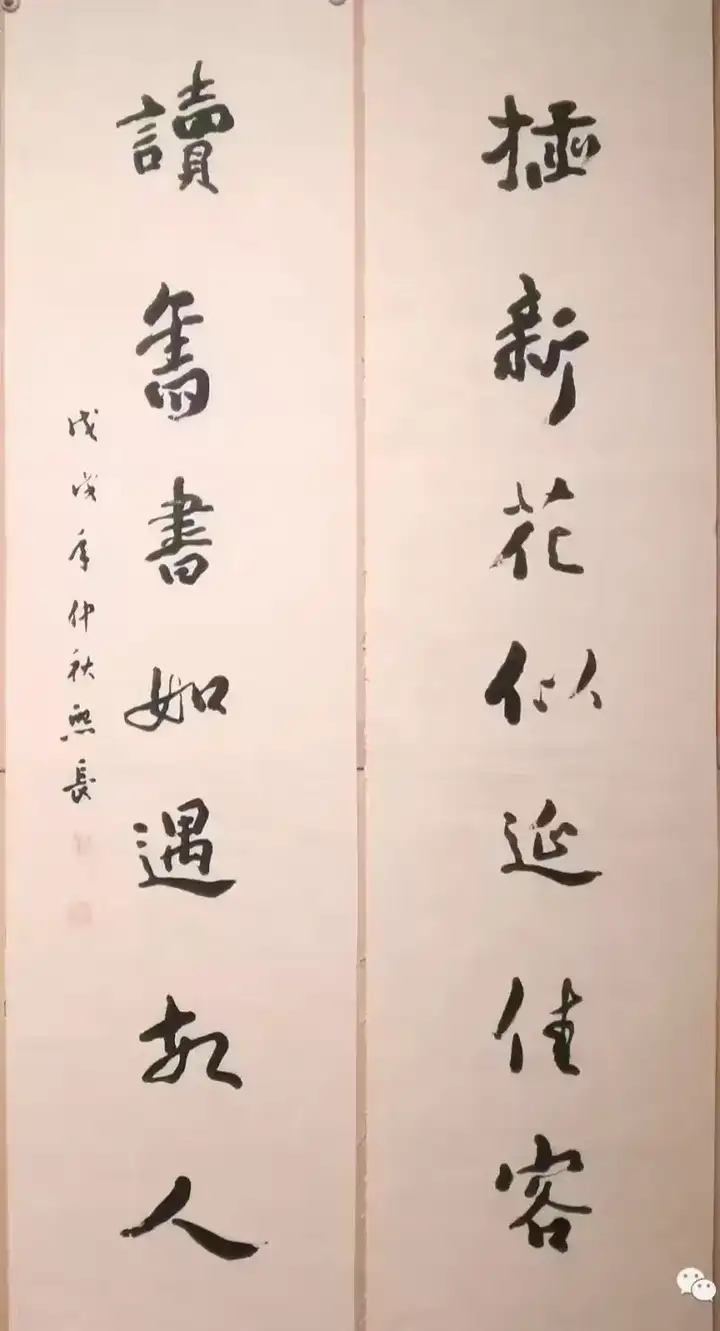 插新花似延佳客
讀舊書如遇故人
戊戌年仲秋熙長